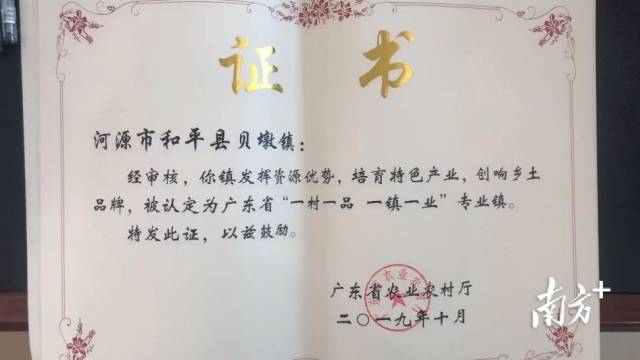 证书
河源市和平县贝墩镇：
经审核，你镇发挥资源优势，培育特色产业，创响乡土
品牌，被认定为广东省“一村一品 一镇一业”专业镇。
特发此证，以兹鼓励。
广东省农业农村厅
二〇一九年十月
南方+